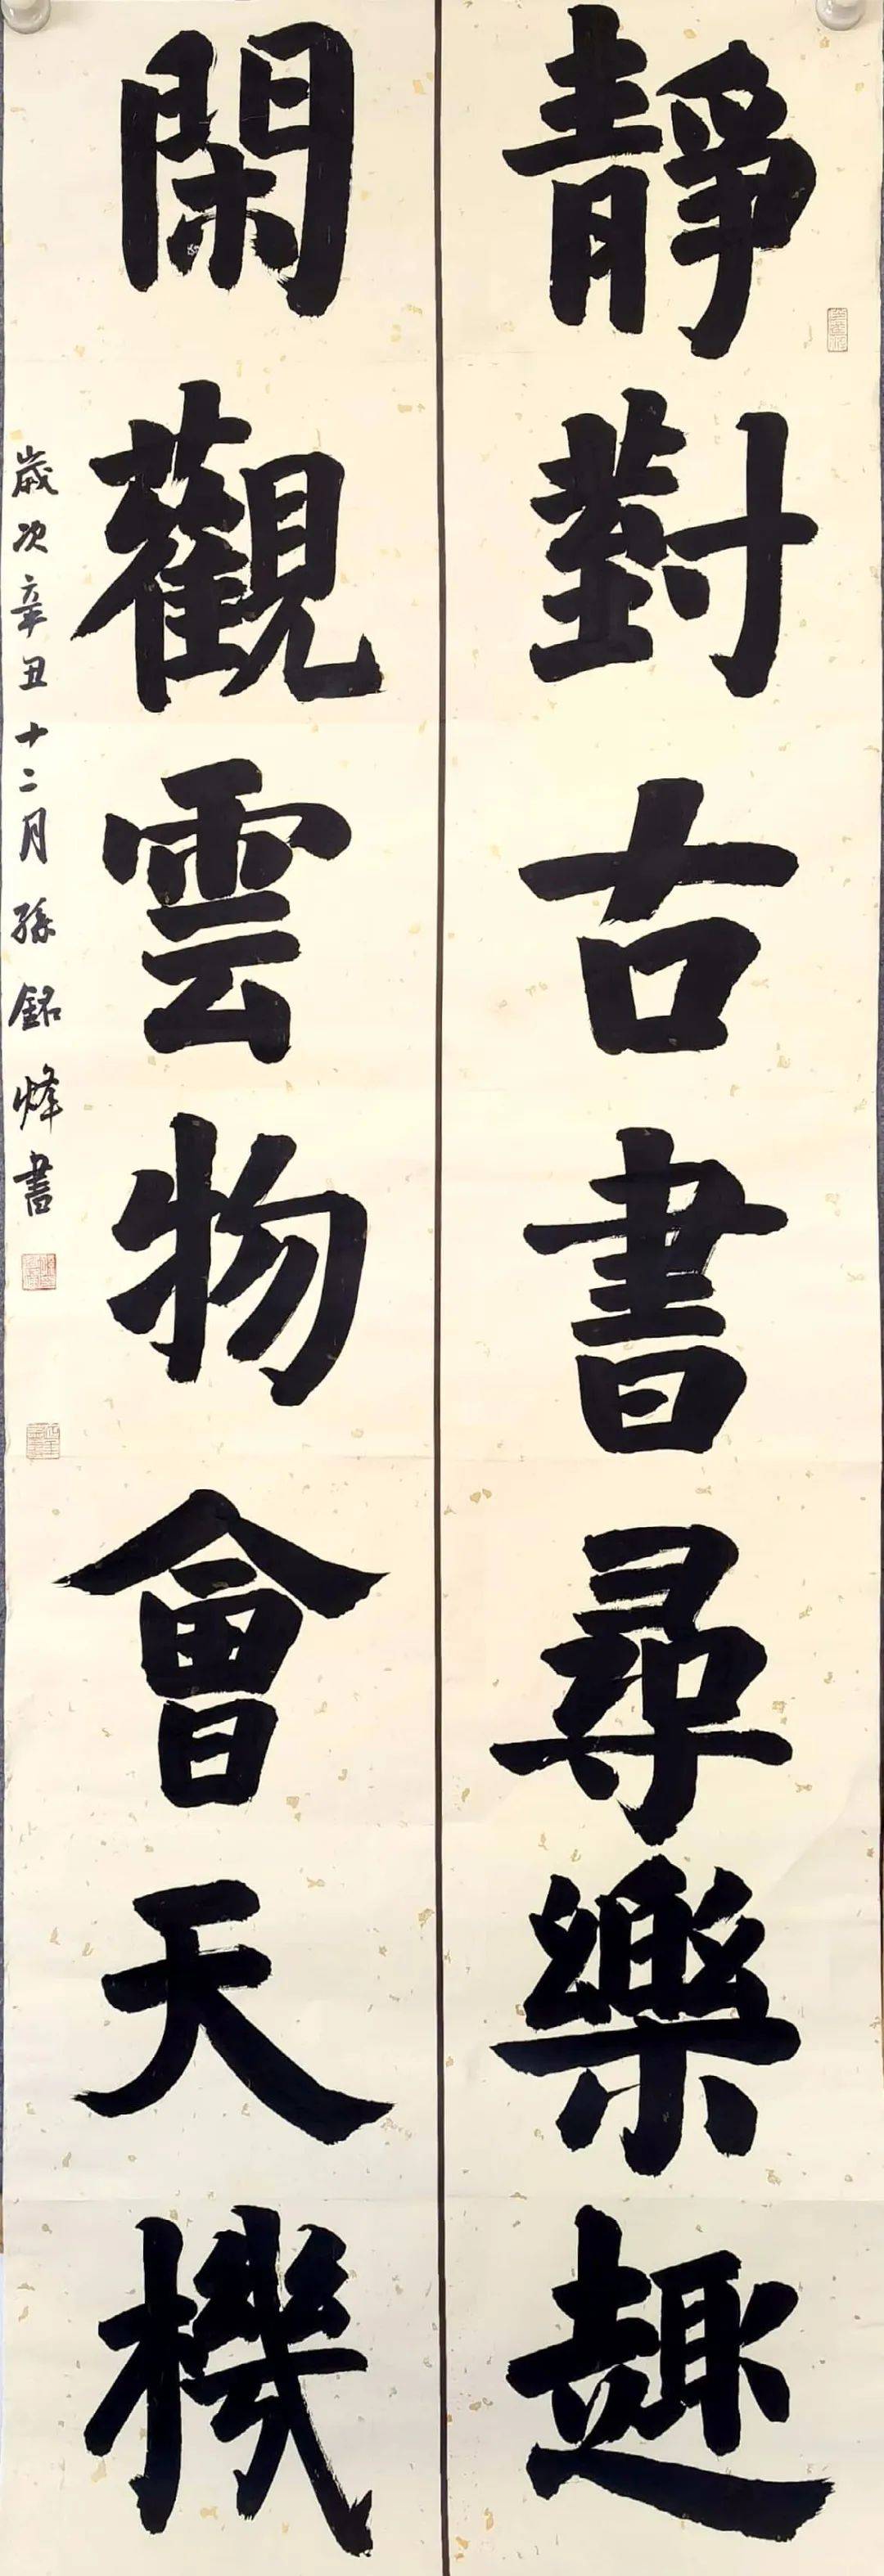 靜對古書尋樂趣
閑觀雲物會天機
歲次辛丑十二月孫銘烽書